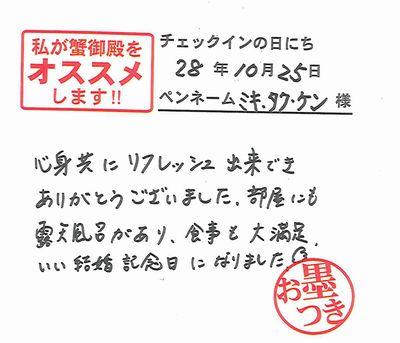 私が蟹御殿を
オススメ
します!!
チェックインの日にち
28年10月25日
ペンネームミキ.タク.ケン様
心身共にリフレッシュ出来でき
ありがとうございました。部屋にも
露天風呂があり、食事も大満足。
いい結婚記念日になりました。
お墨つき